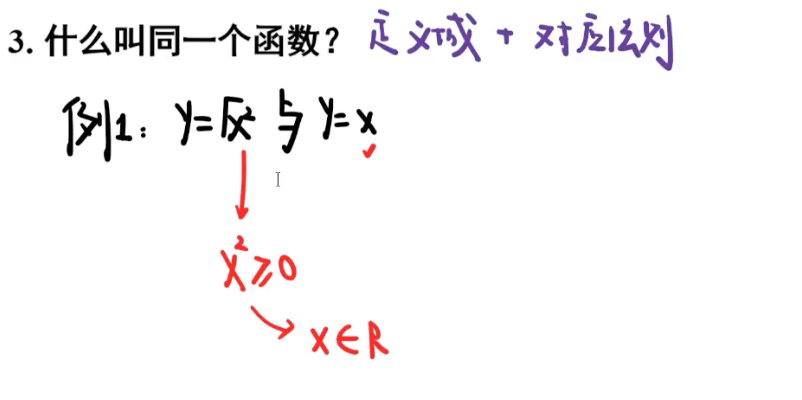 3. 什么叫同一个函数？ 定义域 + 对应法则
例1：y=√x² 与 y=x
x²≥0
x∈R